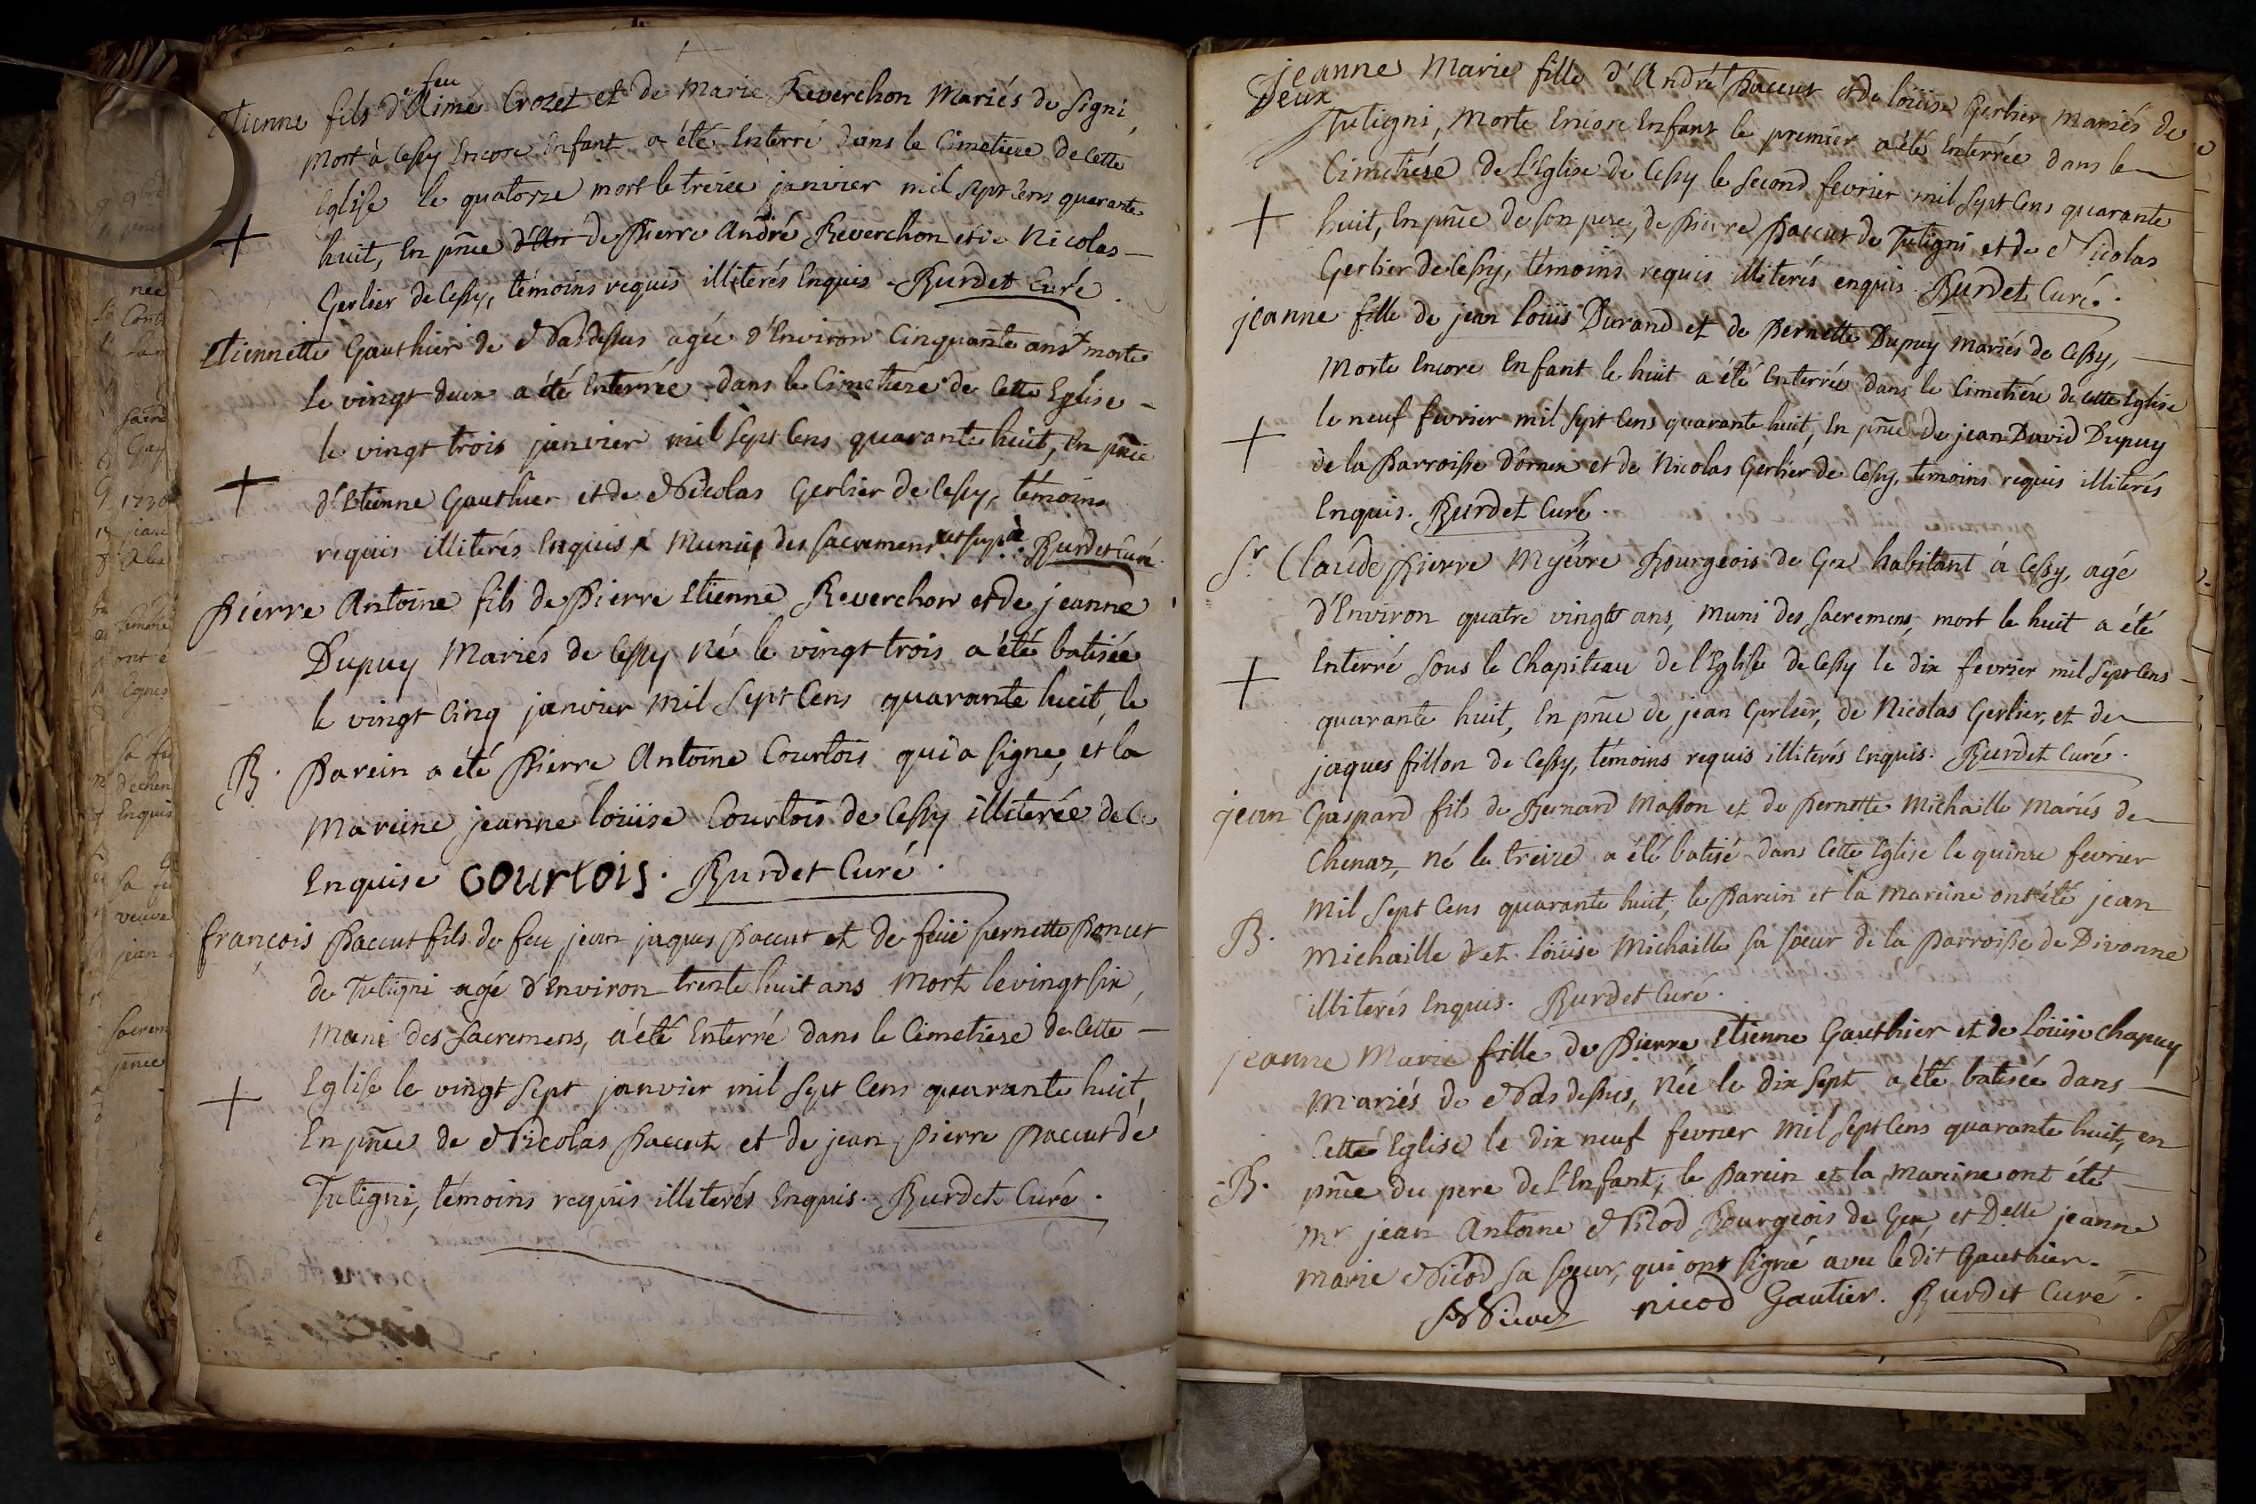 feu
Etienne fils d'Aimé Crozet et de Marie Reverchon Mariés de Signi,
Mort à Cessy Encore Enfant a été Enterré dans le Cimetiere de Cette
Eglise le quatorze mort le treize janvier mil sept Cens quarante
huit, En pñce d'An de Pierre André Reverchon et de Nicolas
Gerlier de Cessy, témoins requis illiterés Enquis. Burdet Curé.
Etiennette Gauthier de Nasdessus agée d'Environ Cinquante ans morte
le vingt deux a été Enterrée dans le Cimetiere de Cette Eglise
le vingt trois janvier mil sept Cens quarante huit, En pñce
d'Etienne Gauthier et de Nicolas Gerlier de Cessy, témoins
requis illiterés Enquis Munie des sacremens Burdet Curé.
Pierre Antoine fils de Pierre Etienne Reverchon et de jeanne
Dupuy Mariés de Cessy Né le vingt trois a été batisée
le vingt Cinq janvier Mil Sept Cens quarante huit, le
B. Parein a été Pierre Antoine Courtois qui a signé, et la
Mareine jeanne loüise Courtois de Cessy illiterée de Ce
Enquise courtois. Burdet Curé.
françois Paccut fils de feu jean jaques Paccut et de feüe pernette Poncet
de Tutigni agé d'Environ trente huit ans Mort le vingt six,
Muni des Sacremens, a été Enterré dans le Cimetiere de Cette
Eglise le vingt sept janvier mil sept Cens quarante huit,
En pñce de Nicolas Paccut et de jean Pierre Paccut de
Tutigni, témoins requis illiterés Enquis. Burdet Curé.
jeanne Marie fille d'André Paccut et de loüise Gerlier Mariés de
Deux
Tutigni, Morte Encore Enfant le premier a été Enterrée dans le
Cimetiére de L'Eglise de Cessy le Second fevrier mil sept Cens quarante
huit, En pñce de son pere, de Pierre Paccut de Tutigni et de Nicolas
Gerlier de Cessy, témoins requis illiterés enquis. Burdet Curé.
jeanne fille de jean loüis Durand et de Pernette Dupuy Mariés de Cessy,
Morte Encore Enfant le huit a été Enterrée dans le Cimetiére de cette Eglise
le neuf fevrier mil sept Cens quarante huit, En pñce de jean David Dupuy
de la Parroisse d'ornex et de Nicolas Gerlier de Cessy, temoins requis illiterés
Enquis. Burdet Curé.
Sr. Claude Pierre Myévre Bourgeois de Gex habitant à Cessy, agé
d'Environ quatre vingts ans, muni des Sacremens, mort le huit a été
Enterré sous le Chapiteau de l'Eglise de Cessy le dix fevrier mil sept Cens
quarante huit, En pñce de jean Gerlier, de Nicolas Gerlier, et de
jaques fillon de Cessy, témoins requis illiterés Enquis. Burdet Curé.
jean Gaspard fils de Bernard Masson et de Pernette Michaille Mariés de
Chenaz, né le treize a été batisé dans Cette Eglise le quinze fevrier
Mil Sept Cens quarante huit, le Parein et la Mareine ont été jean
B. Michaille et loüise Michaille sa soeur de la Parroisse de Divonne
illiterés Enquis. Burdet Curé.
jeanne Marie fille de Pierre Etienne Gauthier et de loüise Chapuy
Mariés de Nasdessus, Née le dix sept a été batisée dans
Cette Eglise le dix neuf fevrier Mil Sept Cens quarante huit, en
B. pñce du pere de l'Enfant, le Parein et la Mareine ont été
Mr jean Antoine Nicod Bourgeois de Gex, et Delle jeanne
Marie Nicod sa soeur, qui ont signé avec le dit Gauthier.
Nicod nicod Gautier. Burdet Curé.